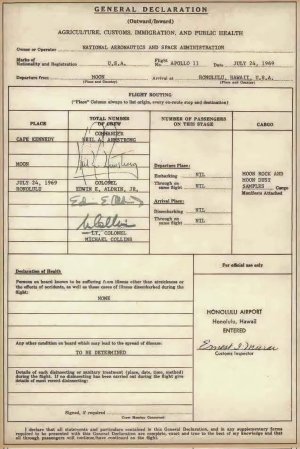 GENERAL DECLARATION
(Outward/Inward)
AGRICULTURE, CUSTOMS, IMMIGRATION, AND PUBLIC HEALTH
Owner or Operator NATIONAL AERONAUTICS AND SPACE ADMINISTRATION
Marks of Nationality and Registration U.S.A. Flight No. APOLLO 11 Date JULY 24, 1969
Departure from MOON (Place and Country) Arrival at HONOLULU, HAWAII, U.S.A. (Place and Country)
FLIGHT ROUTING
("Place" Column always to list origin, every en-route stop and destination)
PLACE
TOTAL NUMBER OF CREW
NUMBER OF PASSENGERS ON THIS STAGE
CARGO
CAPE KENNEDY
COMMANDER
NEIL A. ARMSTRONG
Neil A. Armstrong
MOON
Departure Place:
Embarking NIL
Through on same flight NIL
MOON ROCK AND
MOON DUST
SAMPLES Cargo
Manifests Attached
JULY 24, 1969
HONOLULU
COLONEL
EDWIN E. ALDRIN, JR.
Arrival Place:
Disembarking NIL
Through on same flight NIL
M Collins
LT. COLONEL
MICHAEL COLLINS
Declaration of Health
Persons on board known to be suffering from illness other than airsickness or
the effects of accidents, as well as those cases of illness disembarked during the
flight:
NONE
Any other condition on board which may lead to the spread of disease:
TO BE DETERMINED
Details of each disinsecting or sanitary treatment (place, date, time, method)
during the flight. If no disinsecting has been carried out during the flight give
details of most recent disinsecting:
Signed, if required
Crew Member Concerned
For official use only
HONOLULU AIRPORT
Honolulu, Hawaii
ENTERED
Customs Inspector
I declare that all statements and particulars contained in this General Declaration, and in any supplementary forms
required to be presented with this General Declaration are complete, exact and true to the best of my knowledge and that
all through passengers will continue/have continued on the flight.